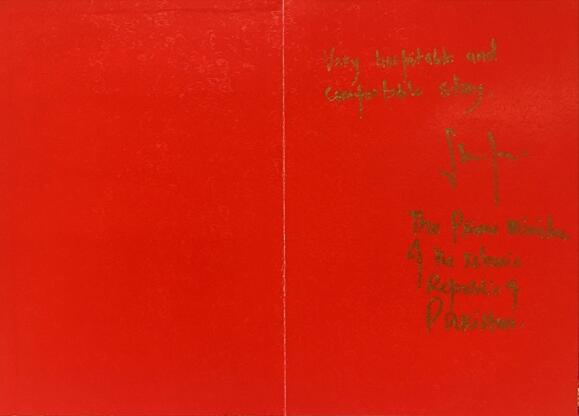 Very hospitable and
comfortable stay.
The Prime Minister
of the Islamic
Republic of
Pakistan